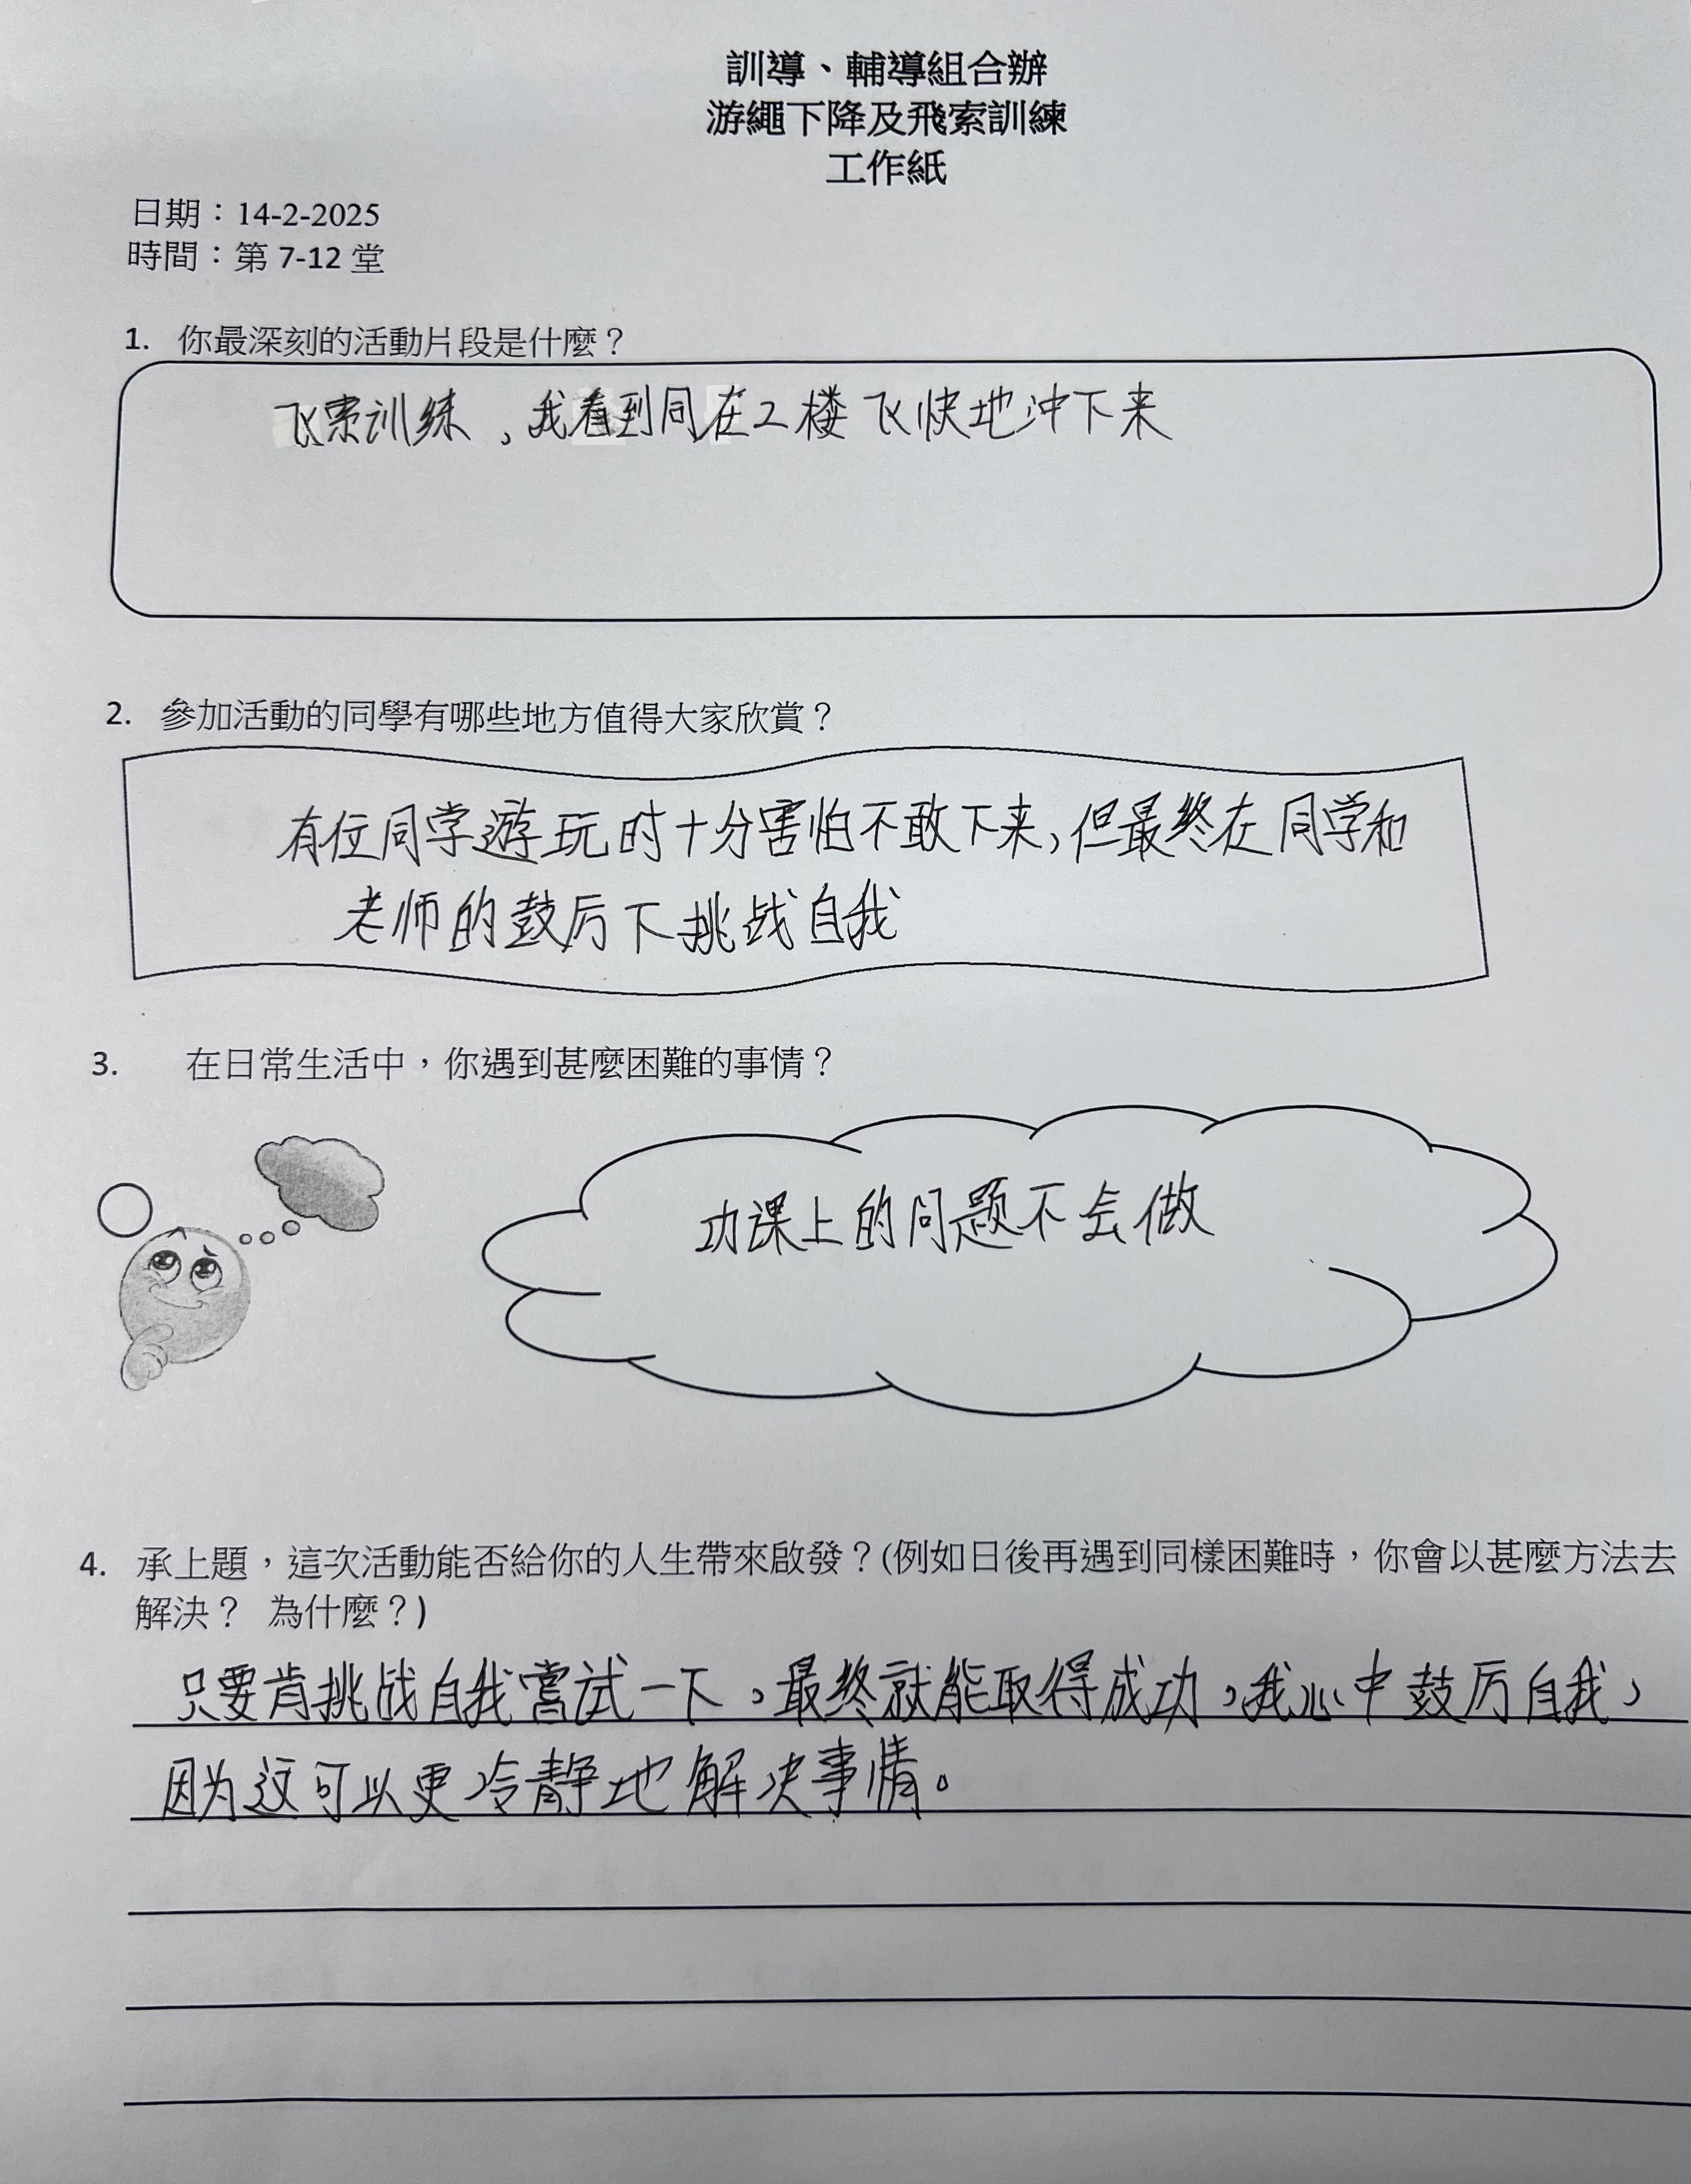 訓導、輔導組合辦
游繩下降及飛索訓練
工作紙
日期：14-2-2025
時間：第 7-12 堂
1. 你最深刻的活動片段是什麼？
飞索训练，我看到同在2楼飞快地冲下来
2. 參加活動的同學有哪些地方值得大家欣賞？
有位同学遊玩时十分害怕不敢下来，但最终在同学和
老师的鼓厉下挑战自我
3. 在日常生活中，你遇到甚麼困難的事情？
功课上的问题不会做
4. 承上題，這次活動能否給你的人生帶來啟發？(例如日後再遇到同樣困難時，你會以甚麼方法去
解決？ 為什麼？)
只要肯挑战自我嘗试一下，最终就能取得成功，我心中鼓厉自我，
因为这可以更冷静地解决事情。